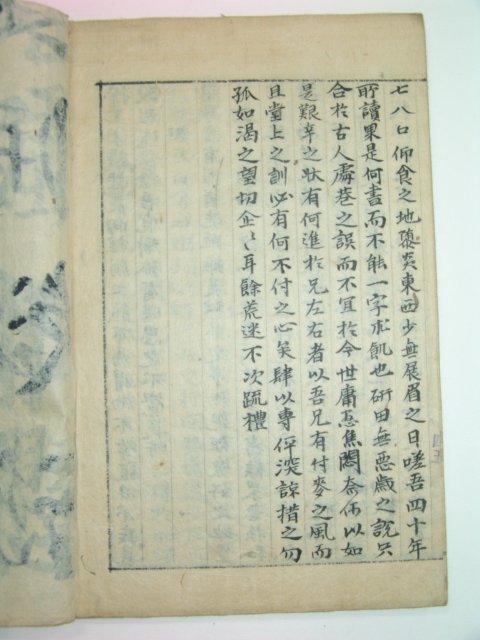 七八口仰食之地隳突東西少無展眉之日嗟吾四十年
所讀果是何書而不能一字求飢也硏田無惡歲之說只
合於古人處巷之誤而不宜於今世庸憃焦悶奈何以如
是艱辛之狀有何進於兄左右者以吾兄有付麥之風而
且堂上之訓必有何不付之心矣肆以專伻深諒措之勿
孤如渴之望切企〻耳餘荒迷不次疏禮